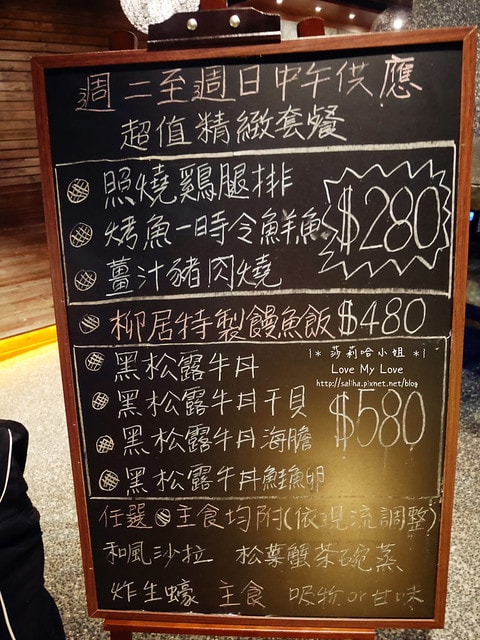 週二至週日中午供應
超值精緻套餐
照燒鷄腿排
烤魚一時令鮮魚
薑汁豬肉燒
$280
柳居特製饅魚飯$480
黑松露牛丼
黑松露牛丼干貝
黑松露牛丼海膽
黑松露牛丼鮭魚卵
$580
|* 莎莉哈小姐 *|
Love My Love
http://saliha.pixnet.net/blog
任選主食均附(依現流調整)
和風沙拉 松葉蟹茶碗蒸
炸生蠔 主食 吸物or甘味